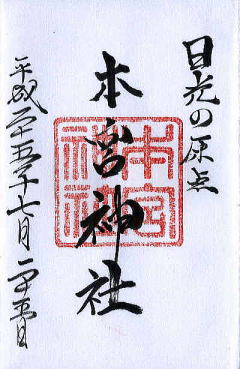 日光の原点
本宮神社
平成二十五年七月二十五日